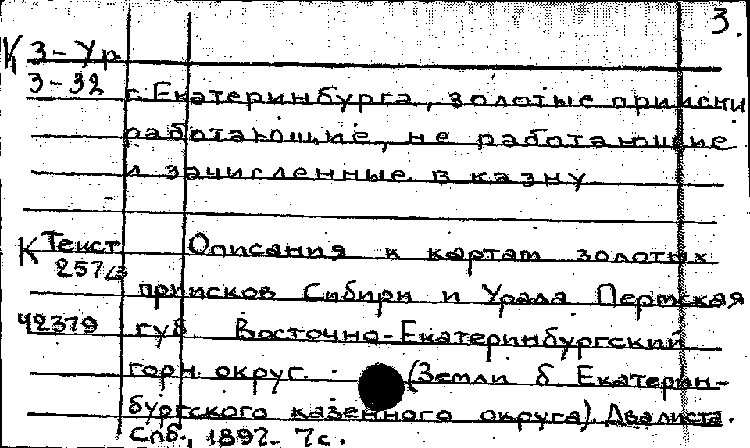 3.
К 3-Ур.
3-32
г. Екатеринбурга, золотые прииски
работающие, не работающие
и зачисленные в казну
К Текст Описания к картам золотых
257/3
приисков Сибири и Урала Пермская
42379 губ Восточно-Екатеринбургский
горн. округ. (Земли б Екатерин-
бургского казенного округа). Два листа.
Спб., 1897. 7с.